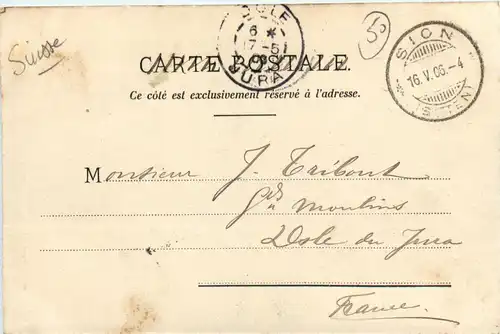 Suisse
DOLE
6 *
17-5
06
JURA
50
SION
16.V.06.-4
(SITTEN)
CARTE POSTALE.
Ce côté est exclusivement réservé à l'adresse.
Monsieur J. Tribout
Gds Moulins
Dole du Jura
France.